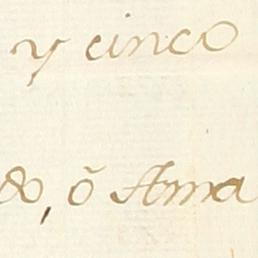 y cinco
do, ō Ama